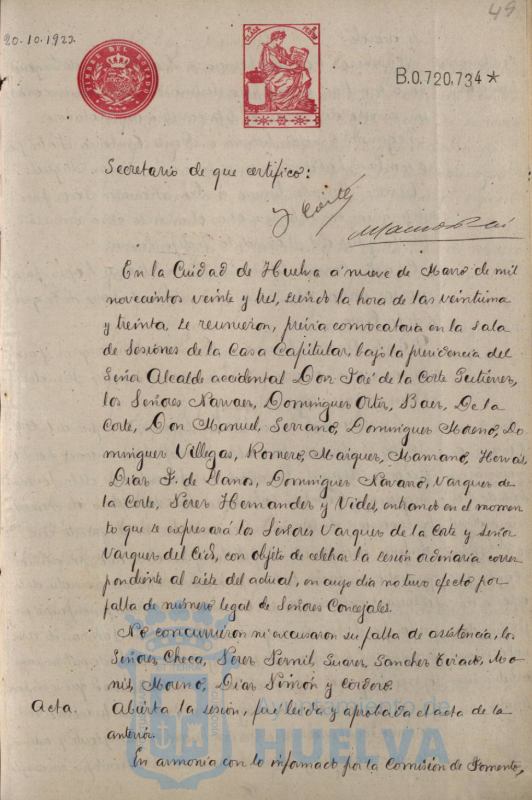 49
20.10.1922
TIMBRE DEL ESTADO
B.0.720.734*
Secretario de que certifico:
y Corte
En la Ciudad de Huelva á nueve de Marzo de mil
novecientos veinte y tres, siendo la hora de las veintiuna
y treinta, se reunieron, previa convocatoria en la Sala
de Sesiones de la Casa Capitular, bajo la presidencia del
Señor Alcalde accidental Don José de la Corte Gutiérrez,
los Señores Narvaez, Dominguez Ortiz, Baez, De la
Corte, Don Manuel, Serrano, Dominguez Moreno, Do-
minguez Villegas, Romero, Maiquez, Manzano, Hervás,
Diaz F. de Llano, Dominguez Navarro, Vazquez de
la Corte, Perez Hernandez y Vides, entrando en el momen-
to que se expresará los Señores Vazquez de la Corte y Señor
Vazquez del Cid, con objeto de celebrar la sesión ordinaria corres-
pondiente al siete del actual, en cuyo dia no tuvo efecto por
falta de número legal de Señores Concejales.
No concurrieron ni excusaron su falta de asistencia, los
Señores Checa, Perez Pernil, Suarez, Sanchez Tirado, Mo-
nis, Moreno, Diaz Simón y Cordero.
Acta. Abierta la sesión, fué leida y aprobada el acta de la
anterior.
En armonia con lo informado por la Comisión de Fomento,
Ayuntamiento de
HUELVA